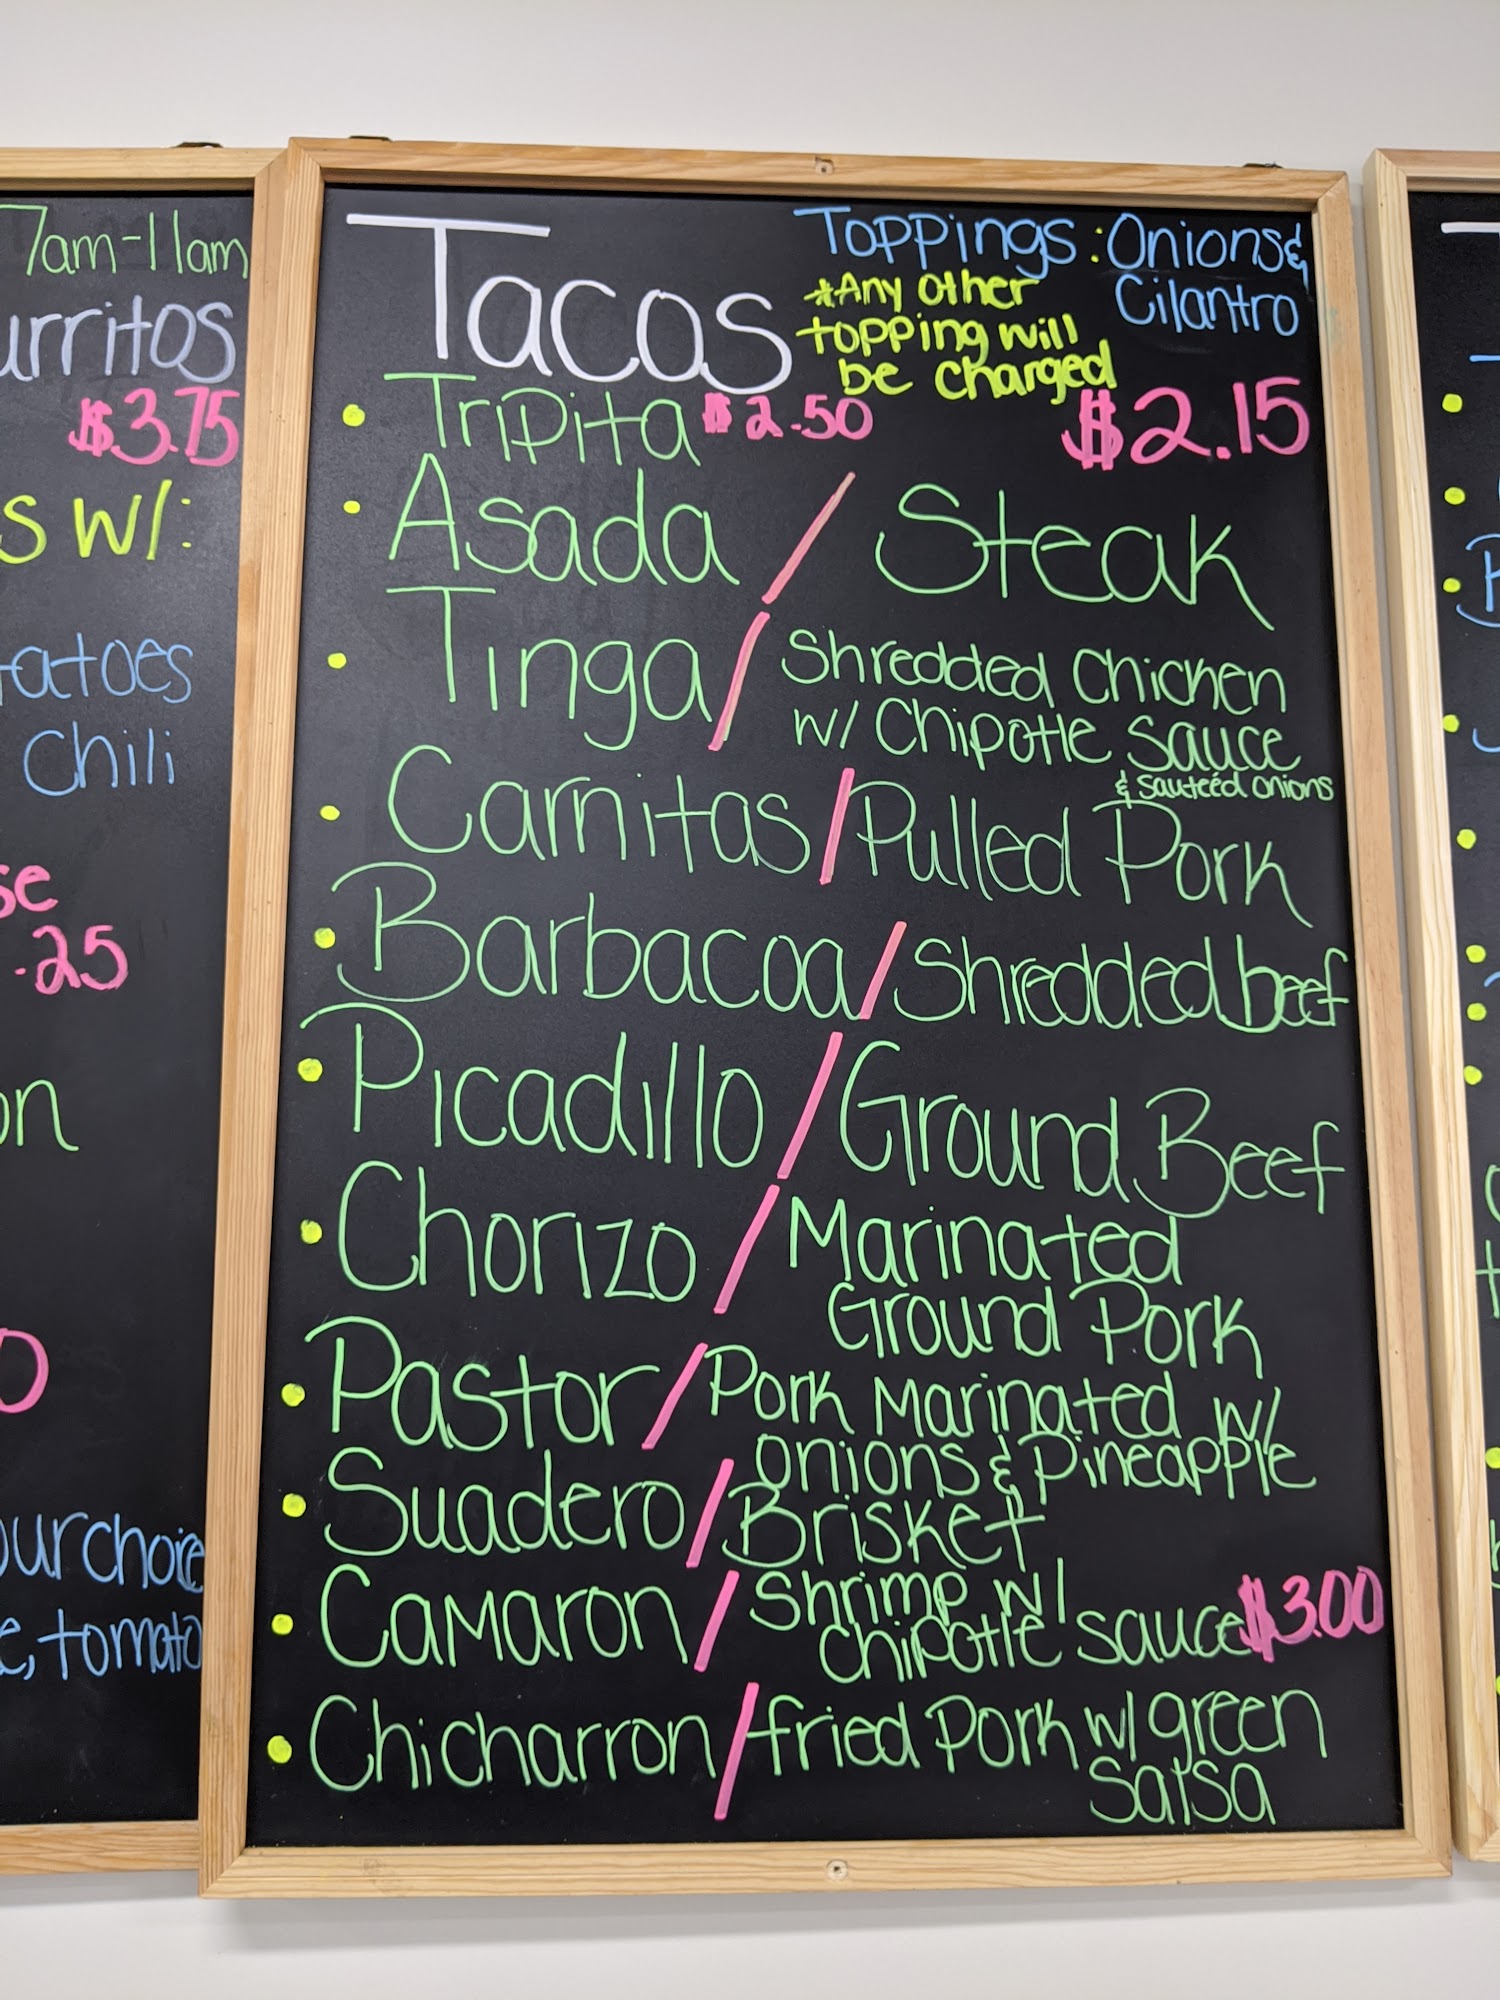 7am-11am
urritos
$3.75
s w/:
tatoes
chili
se
.25
on
0
our choice
e, tomato
Tacos
Toppings: Onions &
Cilantro
*Any other
topping will
be charged
• Tripita $2.50
$2.15
• Asada / Steak
• Tinga / Shredded Chicken
w/ Chipotle Sauce
& Sauteéd onions
• Carnitas / Pulled Pork
• Barbacoa / Shredded beef
• Picadillo / Ground Beef
• Chorizo / Marinated
Ground Pork
• Pastor / Pork Marinated w/
onions & Pineapple
• Suadero / Brisket
• Camaron / Shrimp w/
chipotle sauce $3.00
• Chicharron / fried Pork w/ green
salsa